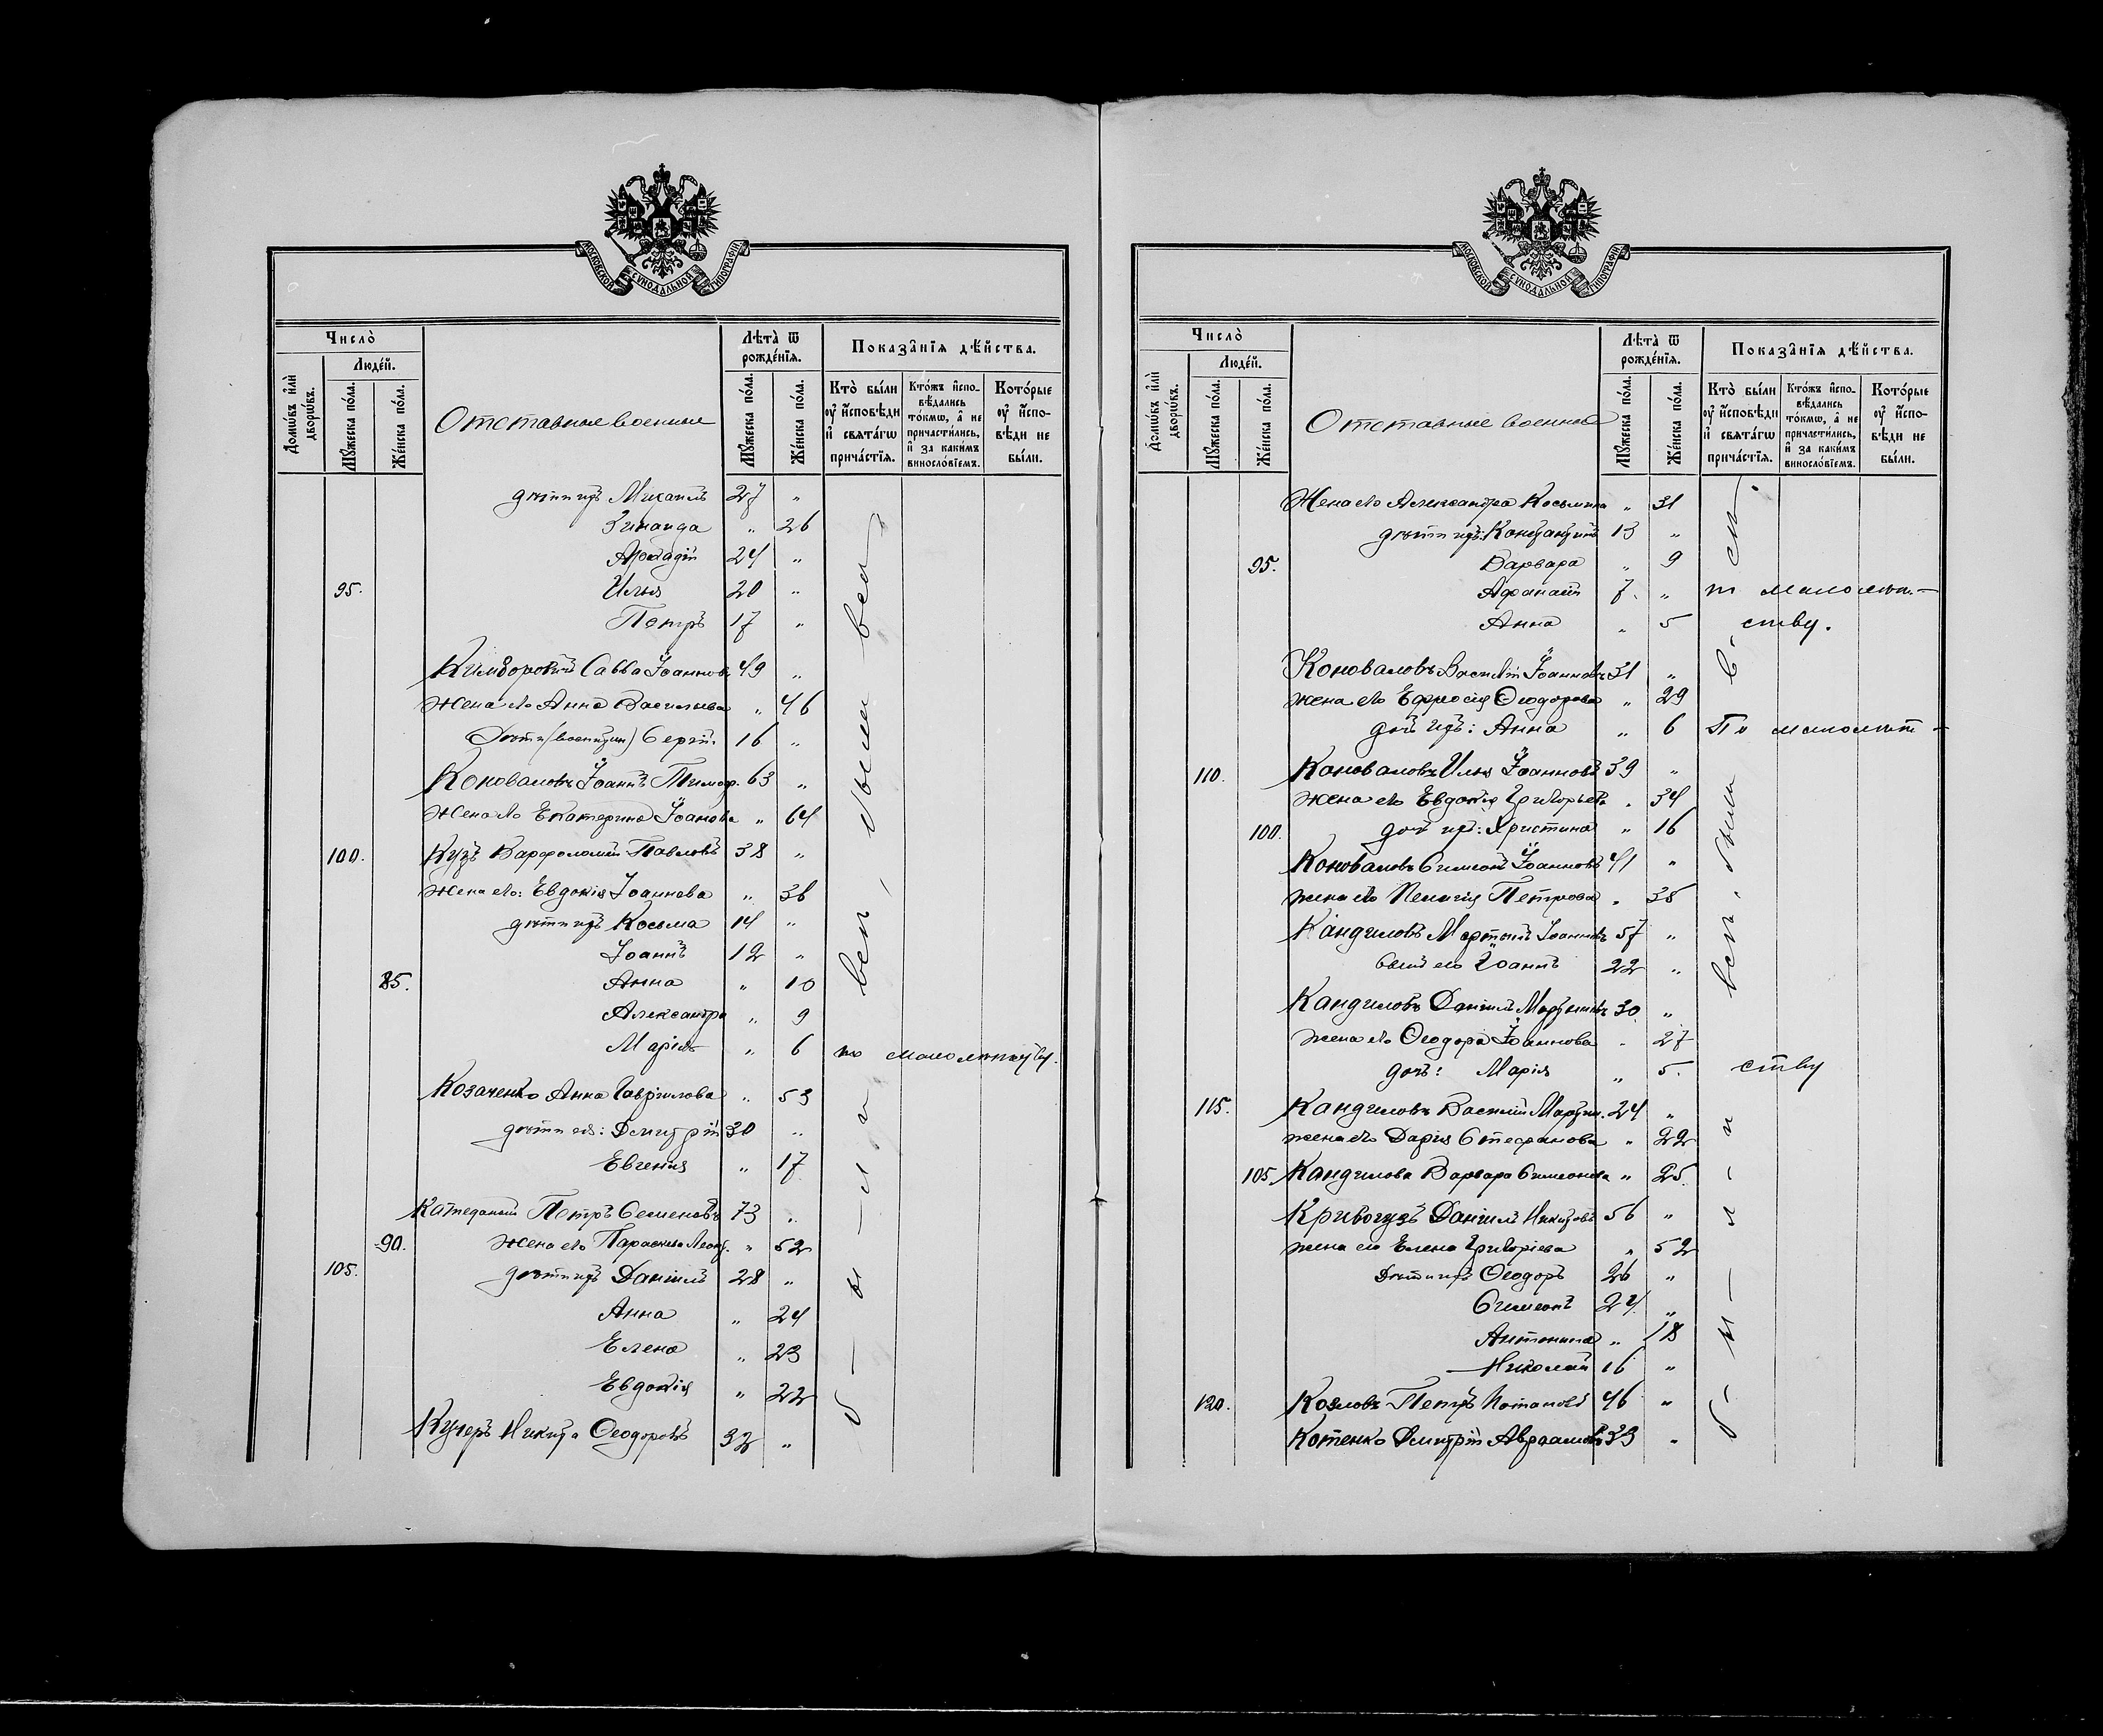 МОСКОВСКОЙ СѴНОДАЛЬНОЙ ТИПОГРАФІИ
Число̀
Домѡ́въ и҆лѝ дворѡ́въ.
Люде́й.
Мꙋ́жеска по́ла.
Же́нска по́ла.
Отставные военные
Лѣ́та ѿ рожде́нїѧ.
Мꙋ́жеска по́ла.
Же́нска по́ла.
Показа̑нїѧ дѣ́йства.
Кто̀ бы́ли ᲂу҆ и҆́сповѣди и҆ свѧта́гѡ прича́стїѧ.
Кто́жъ и҆спо-вѣ́дались то́кмѡ, а҆ не причасти́лись, и҆ за каки́мъ винословїемъ.
Кото́рые ᲂу҆ и҆́спо-вѣди не бы́ли.
дѣти ихъ Михаилъ 27 "
Зинаида " 26
Аркадій 24 "
95. Илья 20 "
Петръ 17 "
Савва Іоанновъ 49 "
Жена его Анна Васильева " 46
Сергій. 16 "
Коноваловъ Іоаннъ Тимоф. 63 "
Жена его Екатерина Іоанова " 64
100. Куцъ Варфоломей Павловъ 38 "
Жена его: Евдокія Іоаннова " 36
дѣти ихъ Косьма 14 "
Іоаннъ 12 "
85. Анна " 10
Александра " 9
Марія " 6 по малолѣтству.
Козаченко Анна Гавріилова " 53
дѣти ея: Дмитрій 30 "
Евгенія " 17
Петръ Семеновъ 73 "
90. Жена его Параскева Леонт. " 52
105. дѣти ихъ Даніилъ 28 "
Анна " 24
Елена " 23
Евдокія " 22
Кучеръ Никита Ѳеодоровъ 32 "
МОСКОВСКОЙ СѴНОДАЛЬНОЙ ТИПОГРАФІИ
Число̀
Домѡ́въ и҆лѝ дворѡ́въ.
Люде́й.
Мꙋ́жеска по́ла.
Же́нска по́ла.
Отставные военные
Лѣ́та ѿ рожде́нїѧ.
Мꙋ́жеска по́ла.
Же́нска по́ла.
Показа̑нїѧ дѣ́йства.
Кто̀ бы́ли ᲂу҆ и҆́сповѣди и҆ свѧта́гѡ прича́стїѧ.
Кто́жъ и҆спо-вѣ́дались то́кмѡ, а҆ не причасти́лись, и҆ за каки́мъ винословїемъ.
Кото́рые ᲂу҆ и҆́спо-вѣди не бы́ли.
Жена его Александра Косьмина " 31
дѣти ихъ: Константинъ 13 "
95. Варвара " 9
Афанасій 7. " малолѣт-
Анна " 5 ству.
Коноваловъ Василій Іоанновъ 31 "
жена его Ефросія Ѳеодорова " 29
дочь ихъ: Анна " 6 По малолѣт-
110. Коноваловъ Илья Іоанновъ 39 "
жена его Евдокія Григорьева " 34
100. дочь ихъ: Христина " 16
Коноваловъ Симеонъ Іоанновъ 41 "
жена его Пелагія Петрова " 35
Кандиловъ Мартынъ Іоанновъ 57 "
сынъ его Іоаннъ 22 "
Кандиловъ Даніилъ Мартыновъ 30 "
жена его Ѳеодора Іоаннова " 27
дочь: Марія " 5. ству
115. Кандиловъ Василій Мартын. 24 "
жена его Дарія Стефанова " 22
105 Кандилова Варвара Симеонова " 25.
Кривогузъ Даніилъ Никитовъ 56 "
жена его Елена Григоріева " 52
Дѣти ихъ Ѳеодоръ 26 "
Симеонъ 24 "
Антонина " 18
Николай 16 "
120. Козловъ Петръ Потаповъ 46 "
Котенко Дмитрій Авраамовъ 33 "